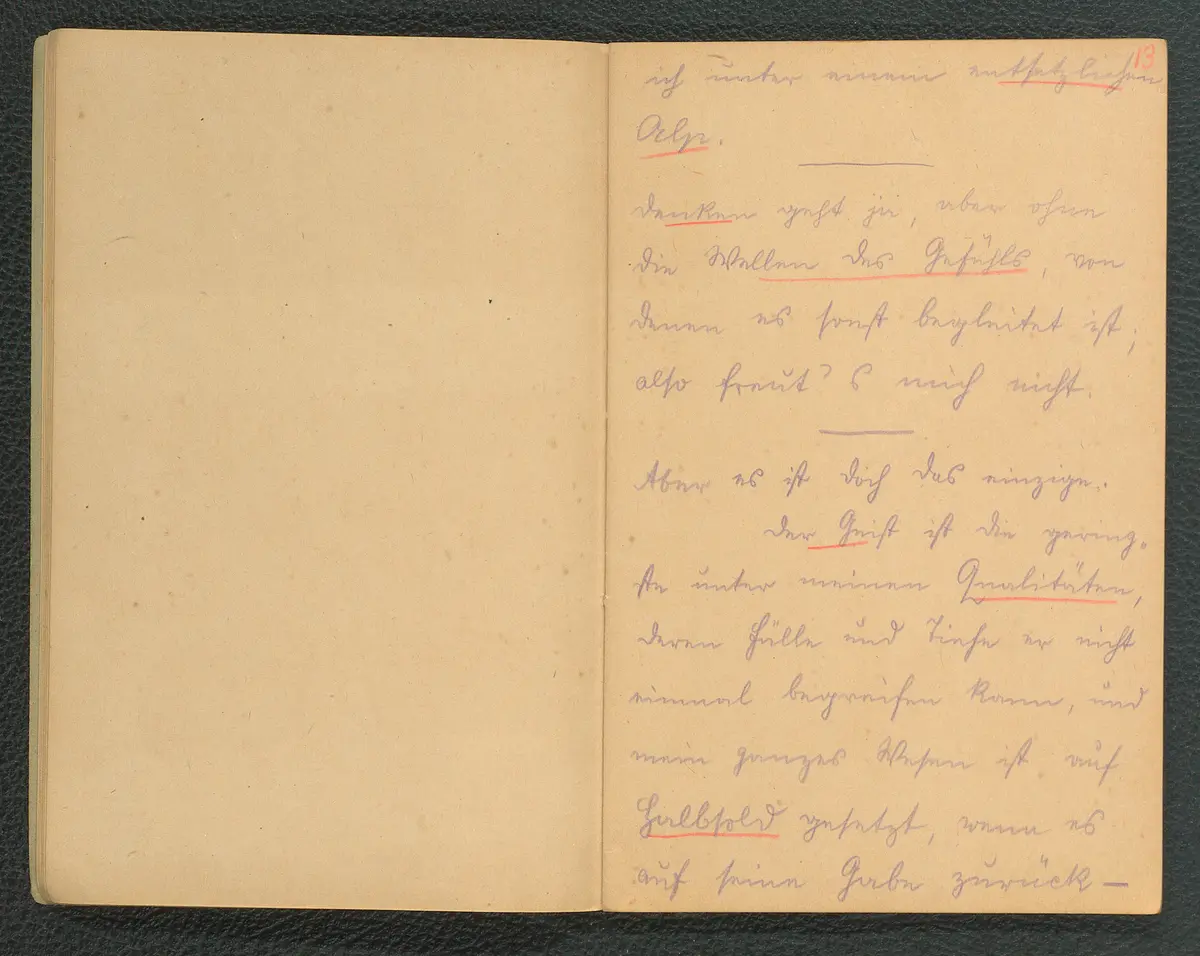 13
ich unter einem entsetzlichen
Alp.
denken geht ja, aber ohne
die Wellen des Gefühls, von
denen es sonst begleitet ist;
also freut's mich nicht.
Aber es ist doch das einzige.
der Geist ist die gering-
ste unter meinen Qualitäten,
deren Fülle und Tiefe er nicht
einmal begreifen kann, und
mein ganzes Wesen ist auf
Halbsold gesetzt, wenn es
auf seine Gabe zurück-